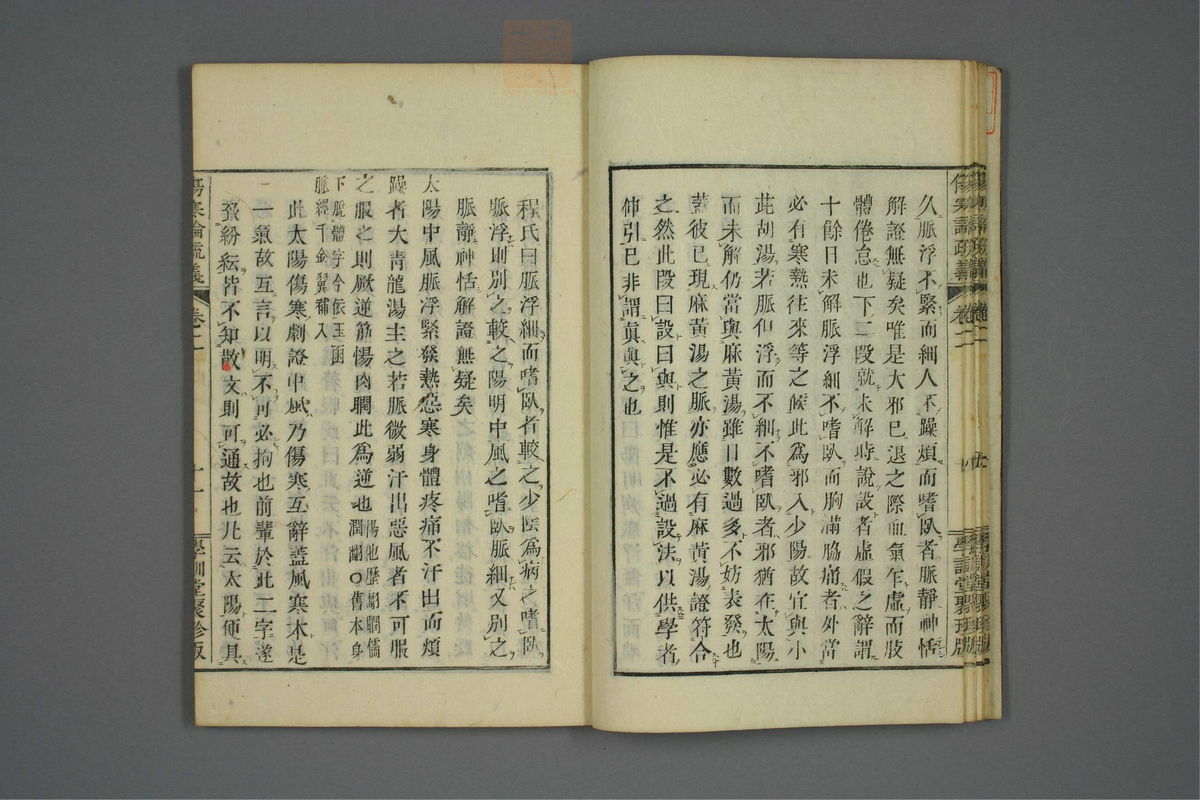 久脈浮不緊而細人不躁煩而嗜臥者脈靜神恬
解證無疑矣唯是大邪已退之際血氣乍虛而肢
體倦怠也下二段就未解時說設者虛假之辭謂
十餘日未解脈浮細不嗜臥而胸滿脇痛者外當
必有寒熱往來等之候此為邪入少陽故宜與小
茈胡湯若脈但浮而不細不嗜臥者邪猶在太陽
而未解仍當與麻黃湯雖日數過多不妨表發也
蓋彼已現麻黃湯之脈亦應必有麻黃湯證符合
之然此段曰設曰與則惟是不過設法以供學者
伸引已非謂眞與之也
傷寒論疏義
卷二
學訓堂聚珍版
程氏曰脈浮細而嗜臥者較之少陰爲病之嗜臥
脈浮則別之較之陽明中風之嗜臥脈細又別之
脈靜神恬解證無疑矣
太陽中風脈浮緊發熱惡寒身體疼痛不汗出而煩
躁者大青龍湯主之若脈微弱汗出惡風者不可服
之服之則厥逆筋惕肉瞤此爲逆也
惕他歷切瞤儒
潤翻○舊本身
下脫體字今依玉函
脈經千金翼補入
此太陽傷寒劇證中風乃傷寒互辭蓋風寒本是
一氣故互言以明不可必拘也前輩於此二字遂
致紛紜皆不知散文則可通故也凡云太陽便具
傷寒論疏義
卷二
十一
學訓堂聚珍版